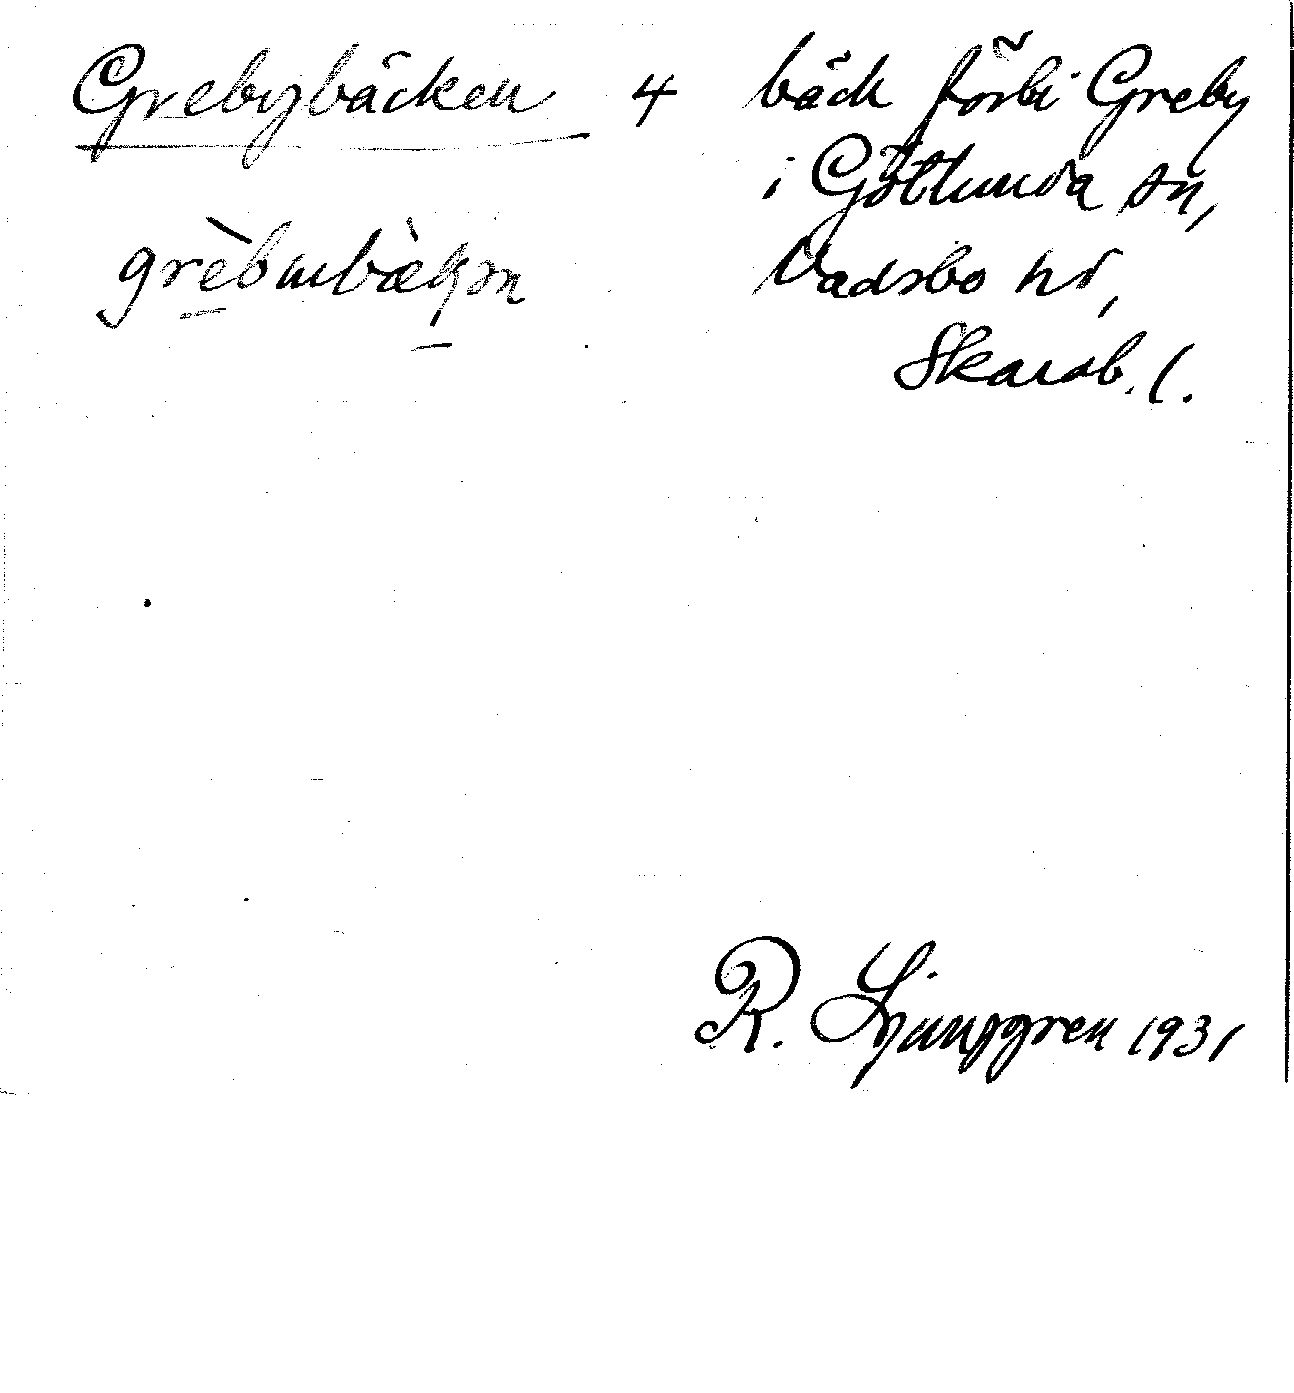 Grebybäcken 4 bäck förbi Greby
i Götlunda sn,
Vadsbo hd,
Skarab. l.
R. Ljunggren 1931